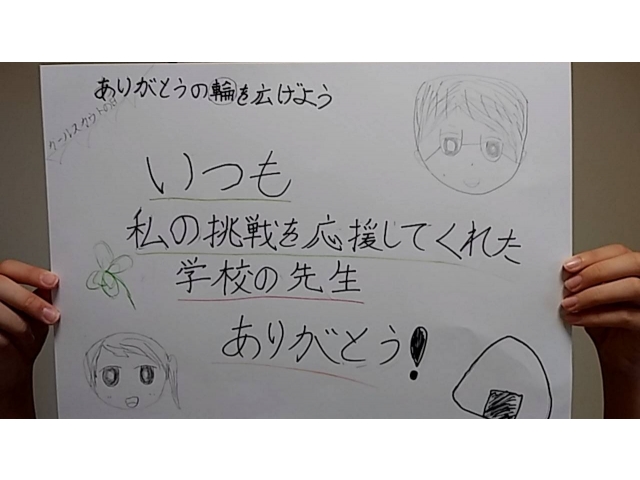 ありがとうの輪を広げよう
いつも
私の挑戦を応援してくれた
学校の先生
ありがとう!